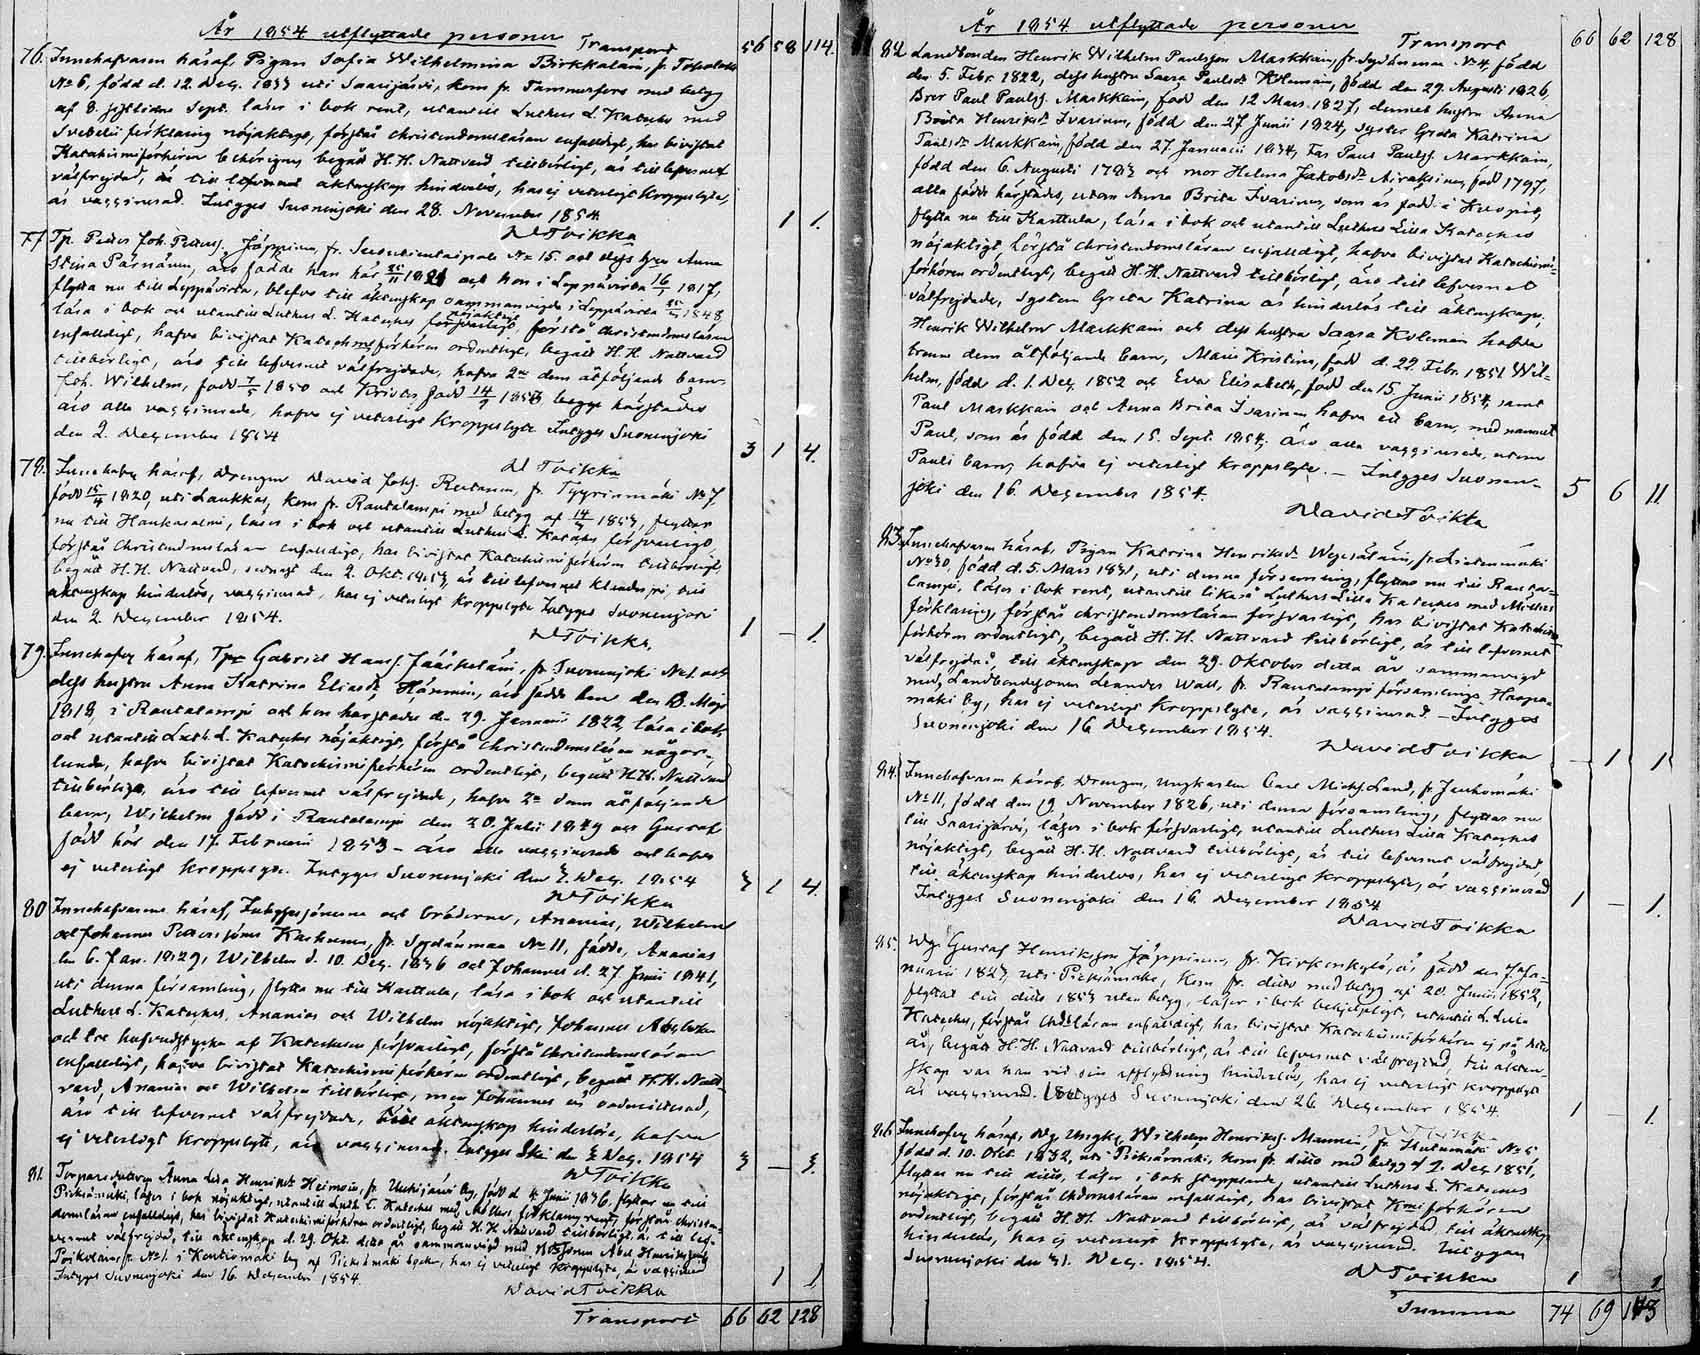 År 1854 utflyttade personer
Transport 56 58 114.
76. Innehafvaren häraf, Pigan Sofia Wilhelmina Birkkalain, fr.
No 6, född d. 12. Dec. 1833 uti Saarijärvi, kom fr. Tammerfors med betyg
af 8. sistlidne Sept. läser i bok rent, utantill Luthers L. Kateches med
Svebelii förklaring nöjaktigt, förstår christendomsläran enfalldigt, har bivistat
Katechismiförhören, begått H. H. Nattvard tillbörligt, är till lefvernet
välfrejdad, är till äktenskap hinderlös, har ej veterligt kroppslyte,
är vaccinerad. Intygges Suonenjoki den 28. November 1854. 1 1.
DToikka
77. Tp. Petter Joh. Petterss. Jäppinen, fr. No 15. och dess hru Anna
Stina Pärnänen, äro födde han här och hon i Leppävirta 16/1 1817,
flytta nu till Leppävirta, blefvo till äktenskap sammanvigde i Leppävirta 1848,
läsa i bok och utantill Luthers L. Kateches nöjaktigt försvarligt, förstå christendomsläran
enfalldigt, hafva bivistat Katechismiförhören ordentligt, begått H. H. Nattvard
tillbörligt, äro till lefvernet välfrejdade, hafva 2ne dem åtföljande barn
Joh. Wilhelm, född 7/5 1850 och född 14/9 1853, begge härstädes
äro alla vaccinerade, hafva ej veterligt kroppslyte. Intygges Suonenjoki
den 2. December 1854 3 1 4.
D Toikka
78. Innehafv. häraf, Drengen David Joh. Rautanen, fr. Tyyrinmäki No 7.
född 15/4 1820, uti Laukkas, kom fr. Rautalampi med betyg af 1853, flyttar
nu till Hankasalmi, läser i bok och utantill Luthers L. Kateches försvarligt
förstår christendomsläran enfalldigt, har bivistat Katechismiförhören tillbörligt,
begått H. H. Nattvard, senast den 2. Okt. 1853, är till lefvernet klanderfri, till
äktenskap hinderlös, vaccinerad, har ej veterligt kroppslyte Intygges Suonenjoki
den 2. December 1854. 1 – 1.
DToikka.
79. Innehafv. häraf, Tpr Gabriel Hanss. Jääskeläin, fr. Suonenjoki No 1. och
dess hustru Anna Katrina Eliasdr Hänninen, äro födde han den 8. Maji
1818, i Rautalampi och hon härstädes d. 29. Januarii 1822, läsa i bok
och utantill Luth. L. Kateches nöjaktigt, förstå christendomsläran någor-
lunda, hafva bivistat Katechismiförhören ordentligt, begått H. H. Nattvard
tillbörligt, äro till lefvernet välfrejdade, hafva 2ne dem åtföljande
barn, Wilhelm född i Rautalampi den 20. Julii 1849 och Gustaf
född här den 17. Februarii 1853 – äro alla vaccinerade och hafva
ej veterligt kroppslyte. Intygges Suonenjoki den 2. Dec. 1854 3 1 4.
DToikka
80 Innehafvarene häraf, Inhyssessönerne och bröderne, Ananias, Wilhelm
och Johannes Petterssöner Karhunen, fr. Sydänmaa No 11, födde, Ananias
den 6. Jan. 1829, Wilhelm d. 10. Dec. 1836 och Johannes d. 27 Junii 1841,
uti denna församling, flytta nu till Karttula, läsa i bok och utantill
Luthers L. Kateches, Ananias och Wilhelm nöjaktigt, Johannes Abcboken
och tre hufvudstycken af Katechesen försvarligt, förstå christendomsläran
enfalldigt, hafva bivistat Katechismiförhören ordentligt, begått H. H. Natt-
vard, Ananias och Wilhelm tillbörligt, men Johannes är oadmitterad,
äro till lefvernet välfrejdade, till äktenskap hinderlösa, hafva
ej veterligt kroppslyte, äro vaccinerade. Intygges Ski den 2 Dec. 1854 3 – 3.
DToikka
81. Torparedottren Anna Lisa Henriksdr Heimoin, fr. by, född d. 4. Junii 1836, flyttar nu till
Pieksämäki, läser i bok nöjaktigt, utantill Luth. L. Kateches med Möllers förklaring rent, förstår christen-
domsläran enfalldigt, har bivistat Katechismiförhören ordentligt, begått H. H. Nattvard tillbörligt, är till lef-
vernet välfrejdad, till äktenskap d. 29. Okt. detta år sammanvigd med Abel Henrikss.
Pöikolain, fr. No 1. i Kentiömäki by af Pieksämäki socken, har ej veterligt kroppslyte, är vaccinerad
Intyges Suonenjoki den 16. December 1854. 1 1
DavidToikka
Transport 66 62 128
År 1854 utflyttade personer
Transport 66 62 128
82. Landbonden Henrik Wilhelm Paulsson Markkain, fr. Sydänmaa No 4, född
den 5. Febr. 1822, dess hustru Saara Paulsdr Kolemain, född den 29. Augusti 1826,
Bror Paul Paulss. Markkain, född den 12 Mars. 1827, dennes hustru Anna
Brita Henriksdr Ivarinen, född den 27 Junii 1824, syster Greta Katrina
Paulsdr Markkain, född den 27. Januarii 1834, Far Paul Paulss. Markkain,
född den 6. Augusti 1783 och mor Helena Jakobsdr Airaksinen, född 1797,
alla födde härstädes, utom Anna Brita Ivarinen, som är född i Kuopio,
flytta nu till Karttula, läsa i bok och utantill Luthers Lilla Kateches
nöjaktigt, förstå christendomsläran enfalldigt, hafva bivistat Katechismi-
förhören ordentligt, begått H. H. Nattvard tillbörligt, äro till lefvernet
välfrejdade, system Greta Katrina är hinderlös till äktenskap;
Henrik Wilhelm Markkain och dess hustru Saara Kolemain hafva
trenne dem åtföljande barn, Maria Kristina, född d. 22. Febr. 1851 Wil-
helm, född d. 1. Dec. 1852 och Eva Elisabeth, född den 15. Junii 1854, samt
Paul Markkain och Anna Brita Ivarinen hafva ett barn, med namnet
Paul, som är född den 15. Sept. 1854; Äro alla vaccinerade, utom
Pauls barn, hafva ej veterligt kroppslyte. – Intygges Suonen-
joki den 16. December 1854. 5 6 11
DavidToikka
83. Innehafvaren häraf, Pigan Katrina Henriksdr Wepsäläin, fr. Lietenmäki
No 30, född d. 5. Mars 1831, uti denna församling, flyttar nu till Rauta-
lampi, läser i bok rent, utantill likaså Luthers Lilla Kateches med Möllers
förklaring, förstår christendomsläran försvarligt, har bivistat Katechismi-
förhören ordentligt, begått H. H. Nattvard tillbörligt, är till lefvernet
välfrejdad, till äktenskap den 29. Oktober detta år sammanvigd
med Landbondesonen Leander Wall, fr. Rautalampi församlings Haapa-
mäki by, har ej veterligt kroppslyte, är vaccinerad. – Intygges
Suonenjoki den 16. December 1854.
DavidToikka – 1 1
84. Innehafvaren häraf, Drengen, Ungkarlen Carl Michelss. Land, fr. Jauhomäki
No 11, född den 19 November 1826, uti denna församling, flyttar nu
till Saarijärvi, läser i bok försvarligt, utantill Luthers Lilla Kateches
nöjaktigt, begått H. H. Nattvard tillbörligt, är till lefvernet välfrejdad,
till äktenskap hinderlös, har ej veterligt kroppslyte, är vaccinerad
Intyges Suonenjoki den 16. December 1854 1 – 1.
DavidToikka
85. Dr. Gustaf Henriksson Jäppinen, fr. Kirkonkylä, är född den 7 Ja-
nuarii 1827, uti Pieksämäki, kom fr. dito med betyg af 20. Junii 1852,
flyttat till dito 1853 utan betyg, läser i bok behjelpligt, utantill L. Lilla
Kateches, förstår Chdsläran enfalldigt, har bivistat Katechismiförhören ej på
år, begått H. H. Nattvard tillbörligt, är till lefvernet välfrejdad, till äkten-
skap var han vid sin afflyttning hinderlös, har ej veterligt kroppslyte
är vaccinerad. Intygges Suonenjoki den 26. December 1854 1 – 1.
DToikka
86. Innehafv. häraf, Dr. Ungk. Wilhelm Henrikss. Manninen, fr. Hulumäki No 5
född d. 10. Okt. 1832, uti Pieksämäki, kom fr. dito med betyg af 2. Dec. 1851,
flyttar nu till dito, läser i bok stappande, utantill Luthers L. Kateches
nöjaktigt, förstår Chdomsläran enfalldigt, har bivistat Kmiförhören
ordentligt, begått H. H. Nattvard tillbörligt, är välfrejdad, till äktenskap
hinderlös, har ej veterligt kroppslyte, är vaccinerad. Intygges
Suonenjoki den 31. Dec. 1854.
DToikka 1 1
Summa 74 69 143